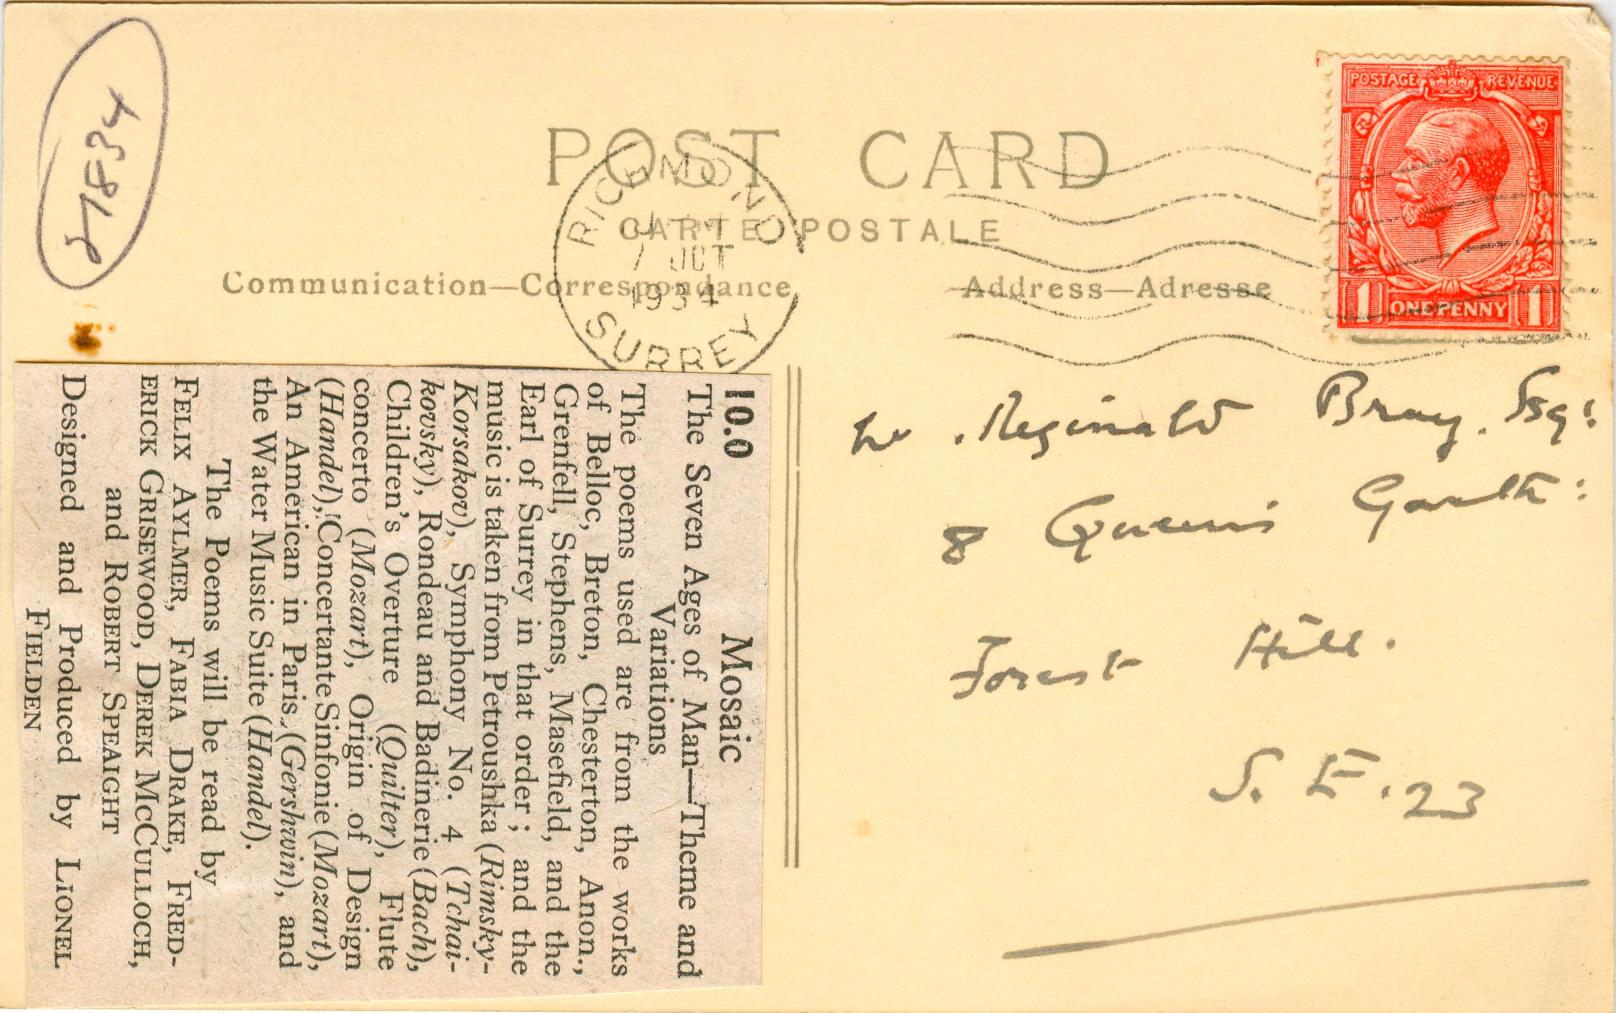 POST CARD
CARTE POSTALE
Communication—Correspondance
Address—Adresse
RICHMOND
7 OCT
1934
SURREY
POSTAGE REVENUE
1 ONE PENNY 1
Reginald Bray. Esq:
8 Queen's Garth:
Forest Hill.
S. E. 23
10.0 Mosaic
The Seven Ages of Man—Theme and
Variations
The poems used are from the works
of Belloc, Breton, Chesterton, Anon.,
Grenfell, Stephens, Masefield, and the
Earl of Surrey in that order; and the
music is taken from Petroushka (Rimsky-
Korsakov), Symphony No. 4 (Tchai-
kovsky), Rondeau and Badinerie (Bach),
Children's Overture (Quilter), Flute
concerto (Mozart), Origin of Design
(Handel), Concertante Sinfonie (Mozart),
An American in Paris (Gershwin), and
the Water Music Suite (Handel).
The Poems will be read by
FELIX AYLMER, FABIA DRAKE, FRED-
ERICK GRISEWOOD, DEREK MCCULLOCH,
and ROBERT SPEAIGHT
Designed and Produced by LIONEL
FIELDEN